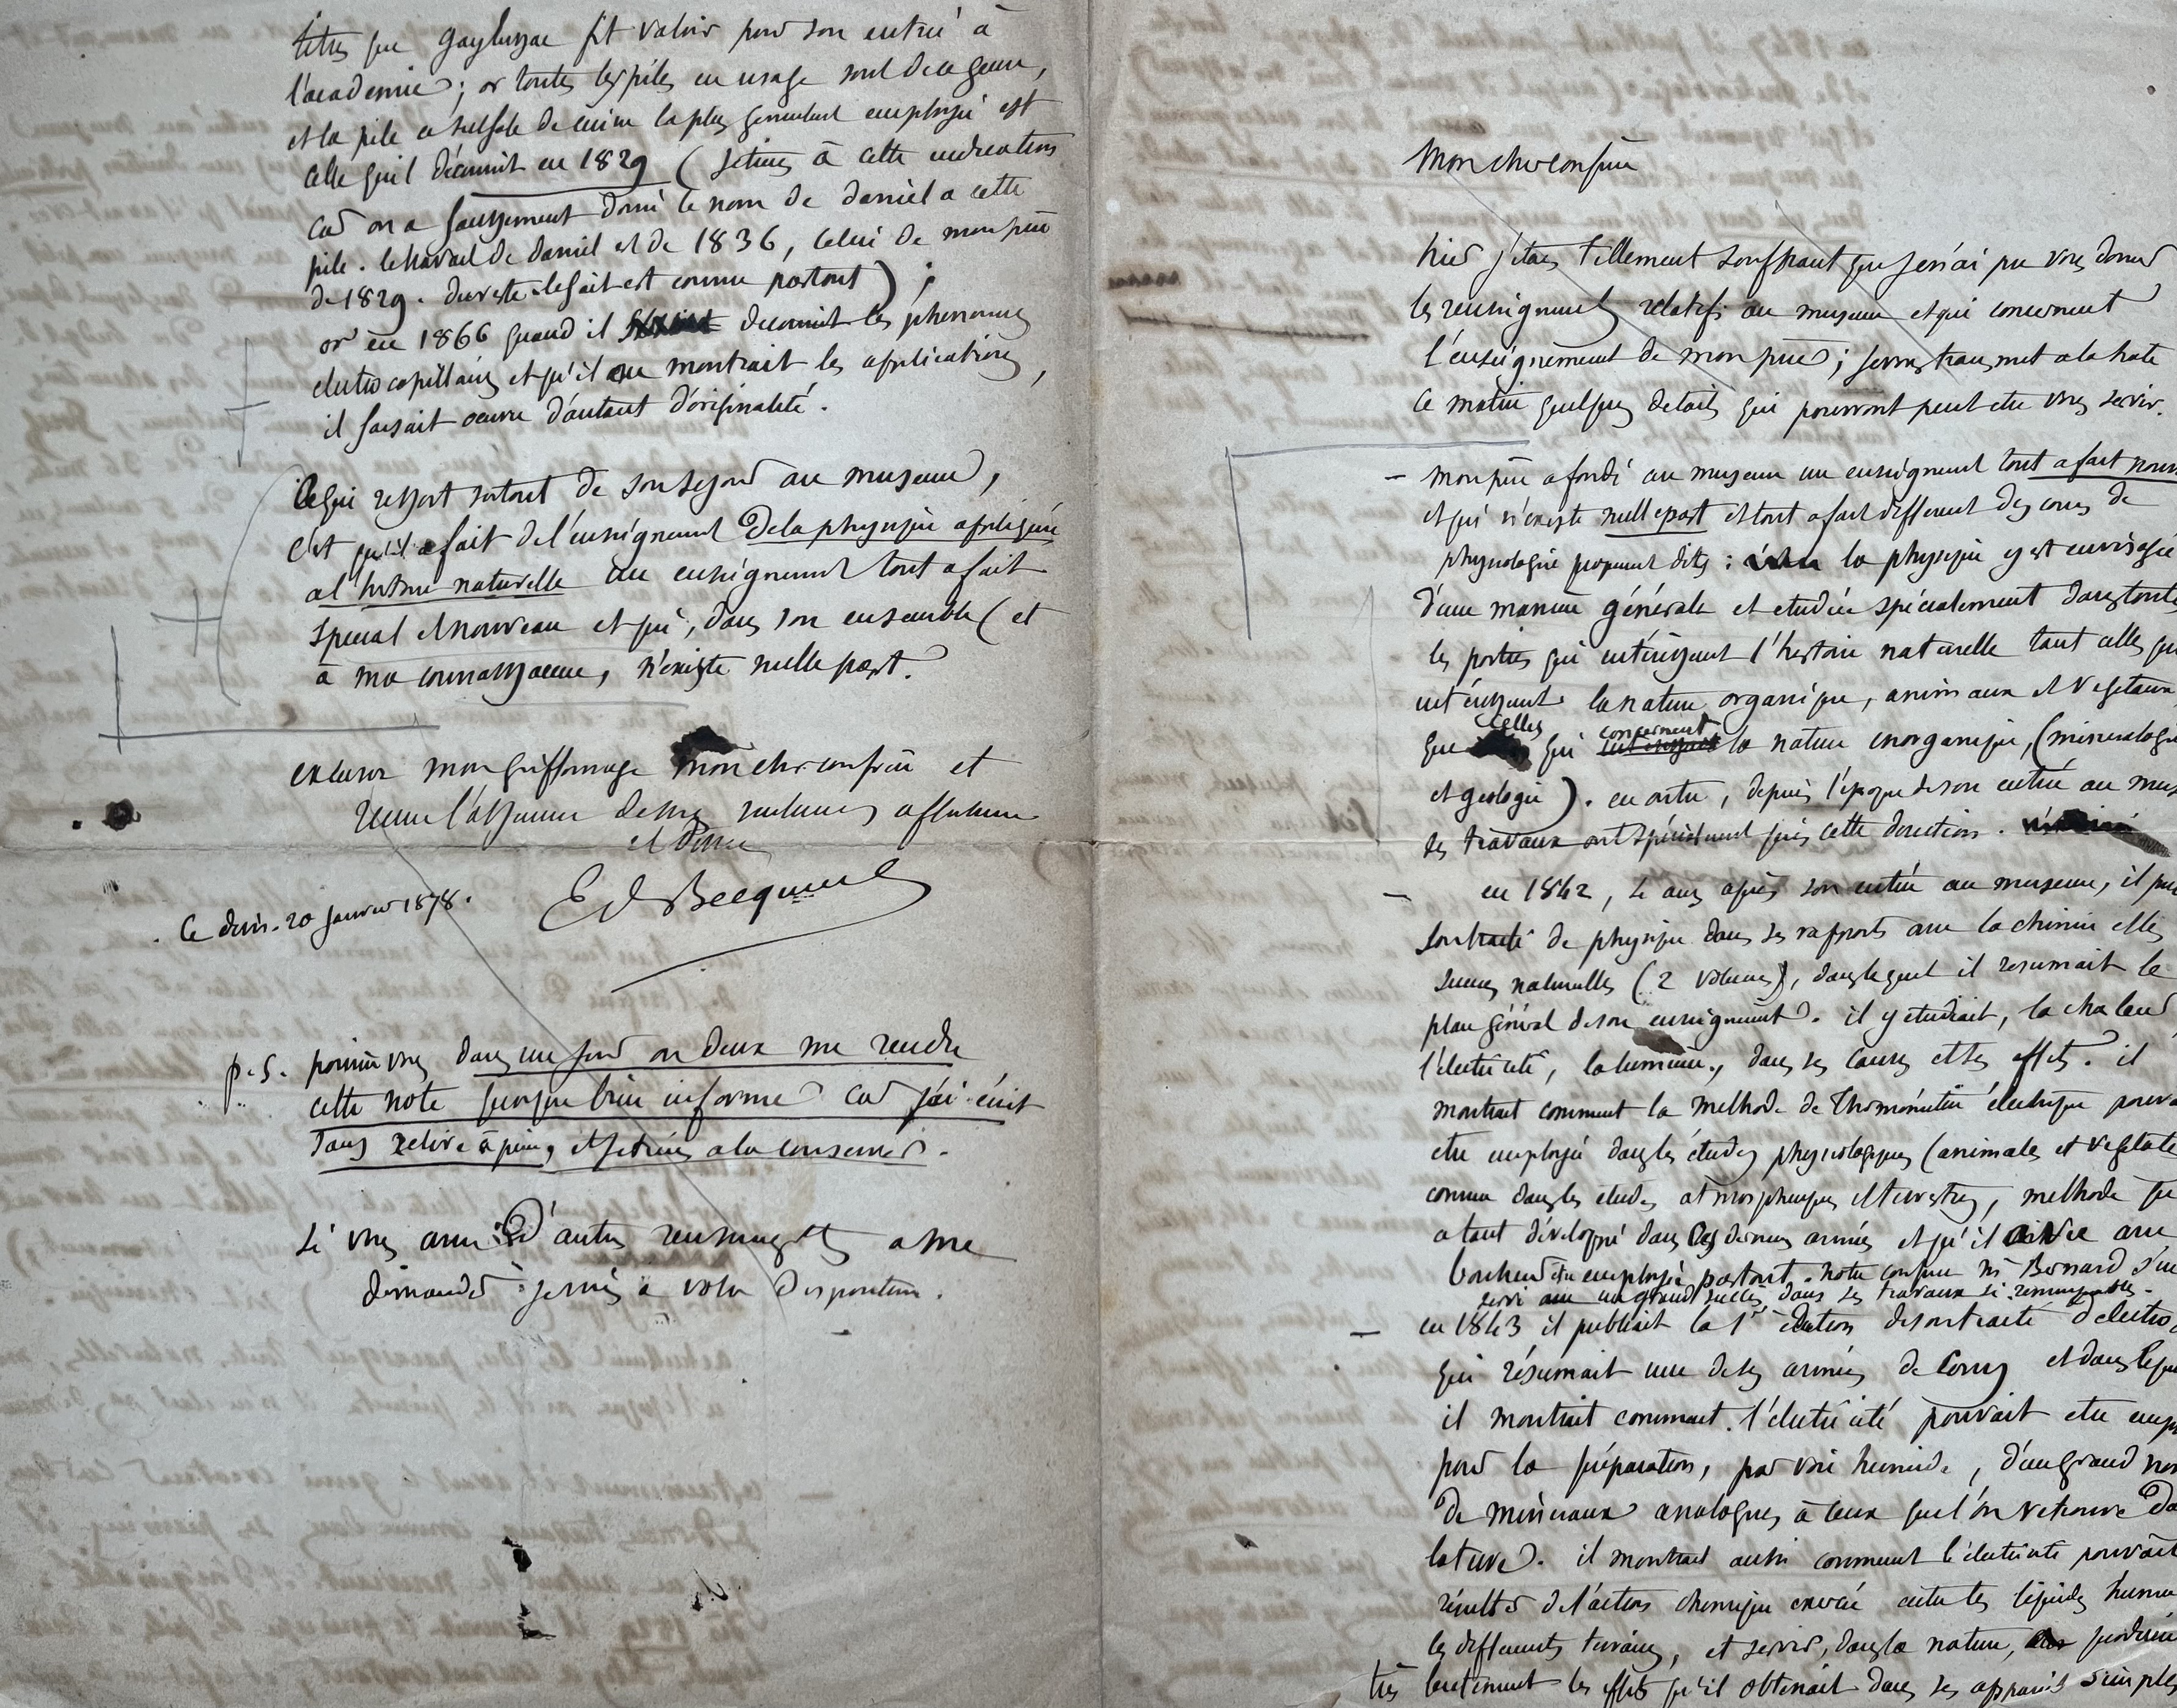 titres que Gaylussac fit valoir pour son entrée à
l'academie ; or toutes les piles en usage sont de ce genre,
et la pile a sulfate de cuivre la plus generalement employée est
celle qu'il découvrit en 1829 ( je tiens à cette indication
car on a faussement donné le nom de daniel a cette
pile . le travail de daniel est de 1836, celui de mon père
de 1829 . du reste le fait est connu partout ) ;
or en 1866 quand il decouvrit les phenomenes
electrocapillaires et qu'il en montrait les applications,
il faisait oeuvre d'autant d'originalité .
Ce qui ressort surtout de son sejour au museum,
c'est qu'il a fait de l'enseignement de la physique appliquée
a l'histoire naturelle un enseignement tout a fait
special et nouveau et qui, dans son ensemble ( et
à ma connaissance, n'existe nulle part .
excusez mon griffonnage mon cher confrère et
l'assurance de mes sentiments affectueux
et devoués
Ed Becquerel
Ce dim. 20 janvier 1878 .
p. s. pourriez vous dans un jour ou deux me rendre
cette note quoique bien informe car j'ai écrit
sans relire à peine, et je tiens a la conserver .
si vous aviez d'autres renseignements a me
demander je suis a votre disposition .
Mon cher confrère
hier j'etais tellement souffrant que je n'ai pu vous donner
les renseignements relatifs au museum et qui concernent
l'enseignement de mon père ; je vous transmet a la hate
ce matin quelques details qui pourront peut etre vous servir.
– mon père a fondé au museum un enseignement tout a fait nouv
et qui n'existe nulle part et tout a fait different des cours de
physiologie proprement dits : la physique y est envisagée
d'une manière générale et etudiée spécialement dans toutes
les parties qui intéressent l'histoire naturelle tant celles qui
intéressent la nature organique, animaux et vegetaux
que celles qui concernent la nature inorganique, (mineralogie
et geologie ) . en outre, depuis l'époque de son entrée au mus
ses travaux ont spécialement suivi cette direction .
– en 1842, 4 ans après son entrée au museum, il pu
son traité de physique dans ses rapports avec la chimie et les
sciences naturelles ( 2 volumes ), dans lequel il resumait le
plan général de son enseignement . il y etudiait, la chaleur
l'électricité, la lumière, dans ses causes et ses effets . il
montrait comment la methode de thermométrie électrique pouva
etre employée dans les études physiologiques (animales et vegetales
comme dans les etudes atmospheriques et terrestres, methode qu
a tant développé dans ces dernieres années et qu'il a vue avec
bonheur etre employée partout . notre confrere Mr Bernard s'en
servi avec un grand succès dans ses travaux si remarquables .
– en 1843 il publiait la 1e édition de son traité d'electro
qui résumait une de ses années de cours et dans leque
il montrait comment l'électricité pouvait etre emp
pour la préparation, par voie humide, d'un grand nom
de minéraux analogues à ceux que l'on retrouve da
la terre . il montrait aussi comment l'électricité pouvait
résulter de l'action chimique exercée entre les liquides hume
les differents terrains, et servir, dans la nature, produire
très lentement les effets qu'il obtenait dans ses appareils simples